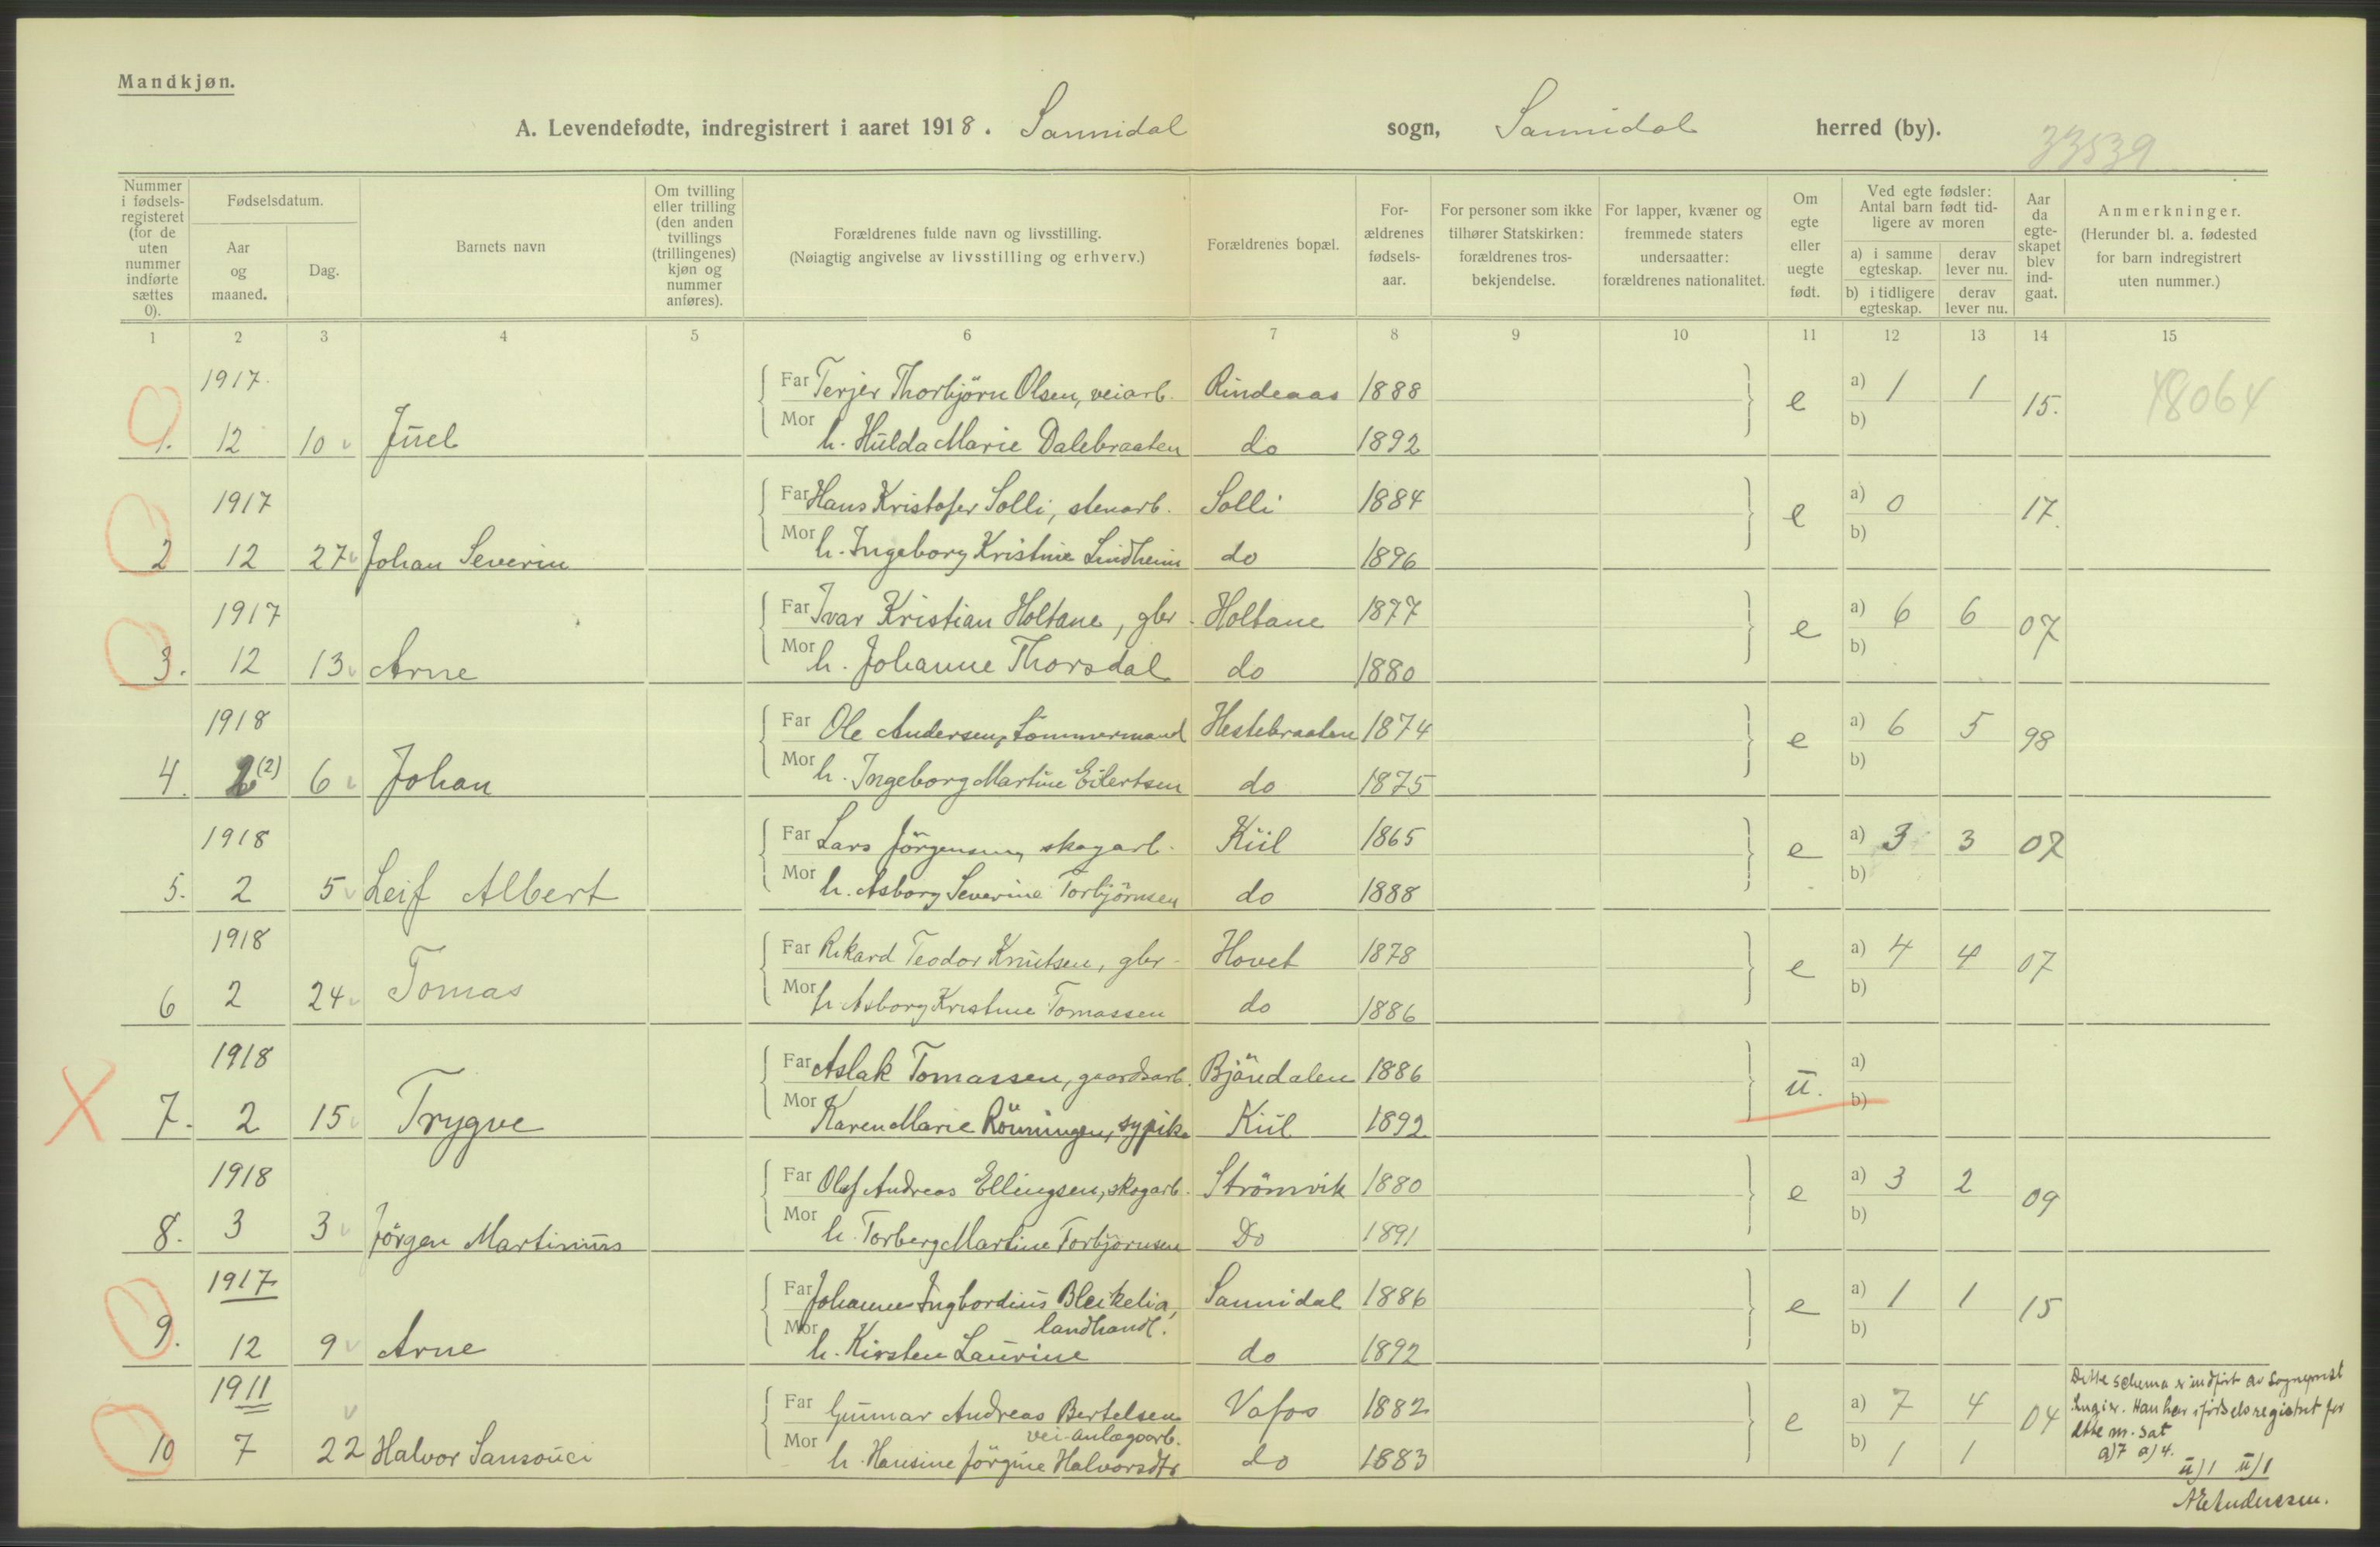 Mandkjøn.
A. Levendefødte, indregistrert i aaret 1918. Sannidal sogn, Sannidal herred (by).
33539
Nummer i fødsels-registeret (for de uten nummer indførte sættes 0).
Fødselsdatum.
Aar og maaned.
Dag.
Barnets navn
Om tvilling eller trilling (den anden tvillings (trillingenes) kjøn og nummer anføres).
Forældrenes fulde navn og livsstilling.
(Nøiagtig angivelse av livsstilling og erhverv.)
Forældrenes bopæl.
For-ældrenes fødsels-aar.
For personer som ikke tilhører Statskirken: forældrenes tros-bekjendelse.
For lapper, kvæner og fremmede staters undersaatter: forældrenes nationalitet.
Om egte eller uegte født.
Ved egte fødsler: Antal barn født tid-ligere av moren
a) i samme egteskap.
derav lever nu.
b) i tidligere egteskap.
derav lever nu.
Aar da egte-skapet blev ind-gaat.
Anmerkninger.
(Herunder bl. a. fødested for barn indregistrert uten nummer.)
1 2 3 4 5 6 7 8 9 10 11 12 13 14 15
1917. Far Terjer Thorbjörn Olsen, veiarb. Rindeaas 1888 e a) 1 1 15. 48064
1. 12 10 Juel Mor h. Hulda Marie Dalebraaten do 1892 b)
1917 Far Hans Kristofer Solli, stenarb. Solli 1884 e a) 0 17.
2 12 27 Johan Severin Mor h. Ingeborg Kristine Lindheim do 1896 b)
1917 Far Ivar Kristian Holtane, gbr. Holtane 1877 e a) 6 6 07
3. 12 13 Arne Mor h. Johanne Thorsdal do 1880 b)
1918 Far Ole Andersen, tömmermand Hestebraaten 1874 e a) 6 5 98
4. 2 (2) 6 Johan Mor h. Ingeborg Martine Eilertsen do 1875 b)
1918 Far Lars Jörgensen, skogarb. Kiil 1865 e a) 3 3 07
5. 2 5 Leif Albert Mor h. Asborg Severine Torbjörnsen do 1888 b)
1918 Far Rikard Teodor Knutsen, gbr. Hovet 1878 e a) 4 4 07
6 2 24 Tomas Mor h. Asborg Kristine Tomassen do 1886 b)
1918 Far Aslak Tomassen, gaardsarb. Bjöndalen 1886 u. a)
7. 2 15 Trygve Mor Karen Marie Rönningen, sypike Kiil 1892 b)
1918 Far Olaf Andreas Ellingsen, skogarb. Strömvik 1880 e a) 3 2 09
8. 3 3 Jörgen Martinius Mor h. Torberg Martine Torbjörnsen Do 1891 b)
1917 Far Johannes Ingbordius Bleikelia, Sannidal 1886 e a) 1 1 15
landhandl.
9. 12 9 Arne Mor h. Kirsten Laurine do 1892 b)
1911 Far Gunnar Andreas Bertelsen Vafos 1882 e a) 7 4 04
vei-anlægsarb.
10 7 22 Halvor Sansouci Mor h. Hansine Jörgine Halvorsdtr do 1883 b) 1 1
Dette schema er indfört av Sogneprest
Han har i födselsregistret for
dette nr. sat
a) 7 a) 4.
u) 1 u) 1